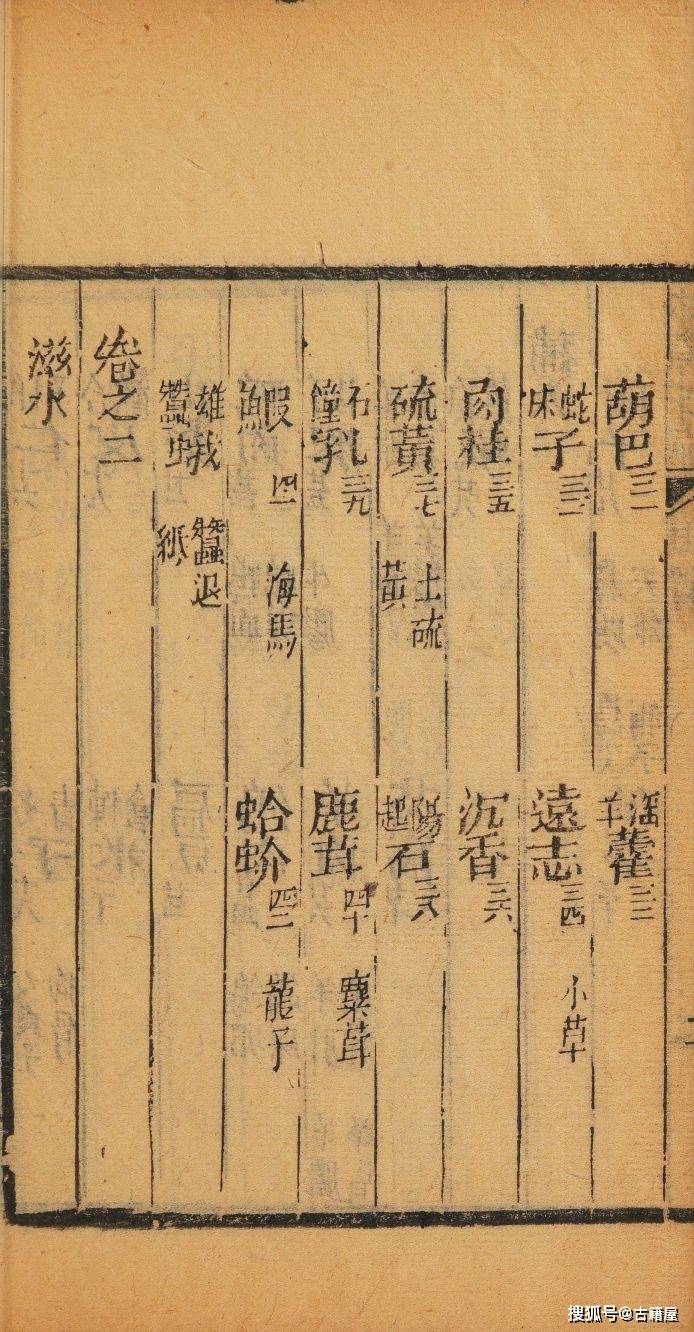 葫巴三一 淫羊藿三二
蛇床子三三 遠志三四 小草
肉桂三五 沉香三六
硫黃三七 土硫黃 陽起石三八
石鐘乳三九 鹿茸四十 麋茸
鰕四一 海馬 蛤蚧四二 龍子
雄蠶蛾 蠶退紙
卷之二
滋水
搜狐号@古籍屋